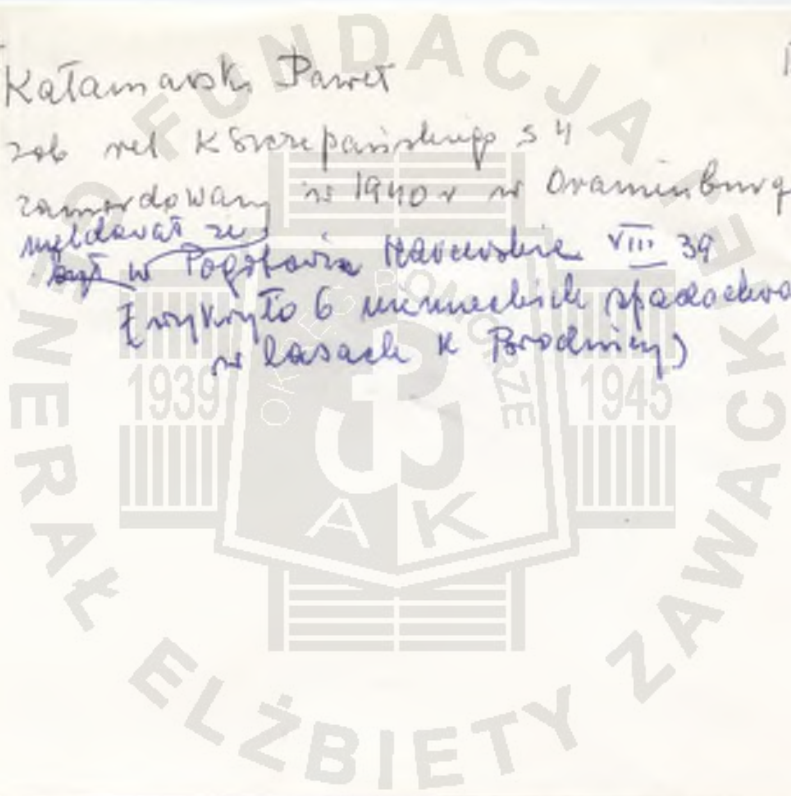 Kałamarski Paweł
zob rel K Szczepańskiego s 4
zamordowany w 1940 r w Oranienburg
meldował ze
był w Pogotowiu Harcerskim VIII 39
(wykryto 6 niemieckich spadochro
w lasach k Brodnicy)
FUNDACJA
GENERAŁ ELŻBIETY ZAWACKIEJ
OKRĘG POMORZE
1939
1945
AK